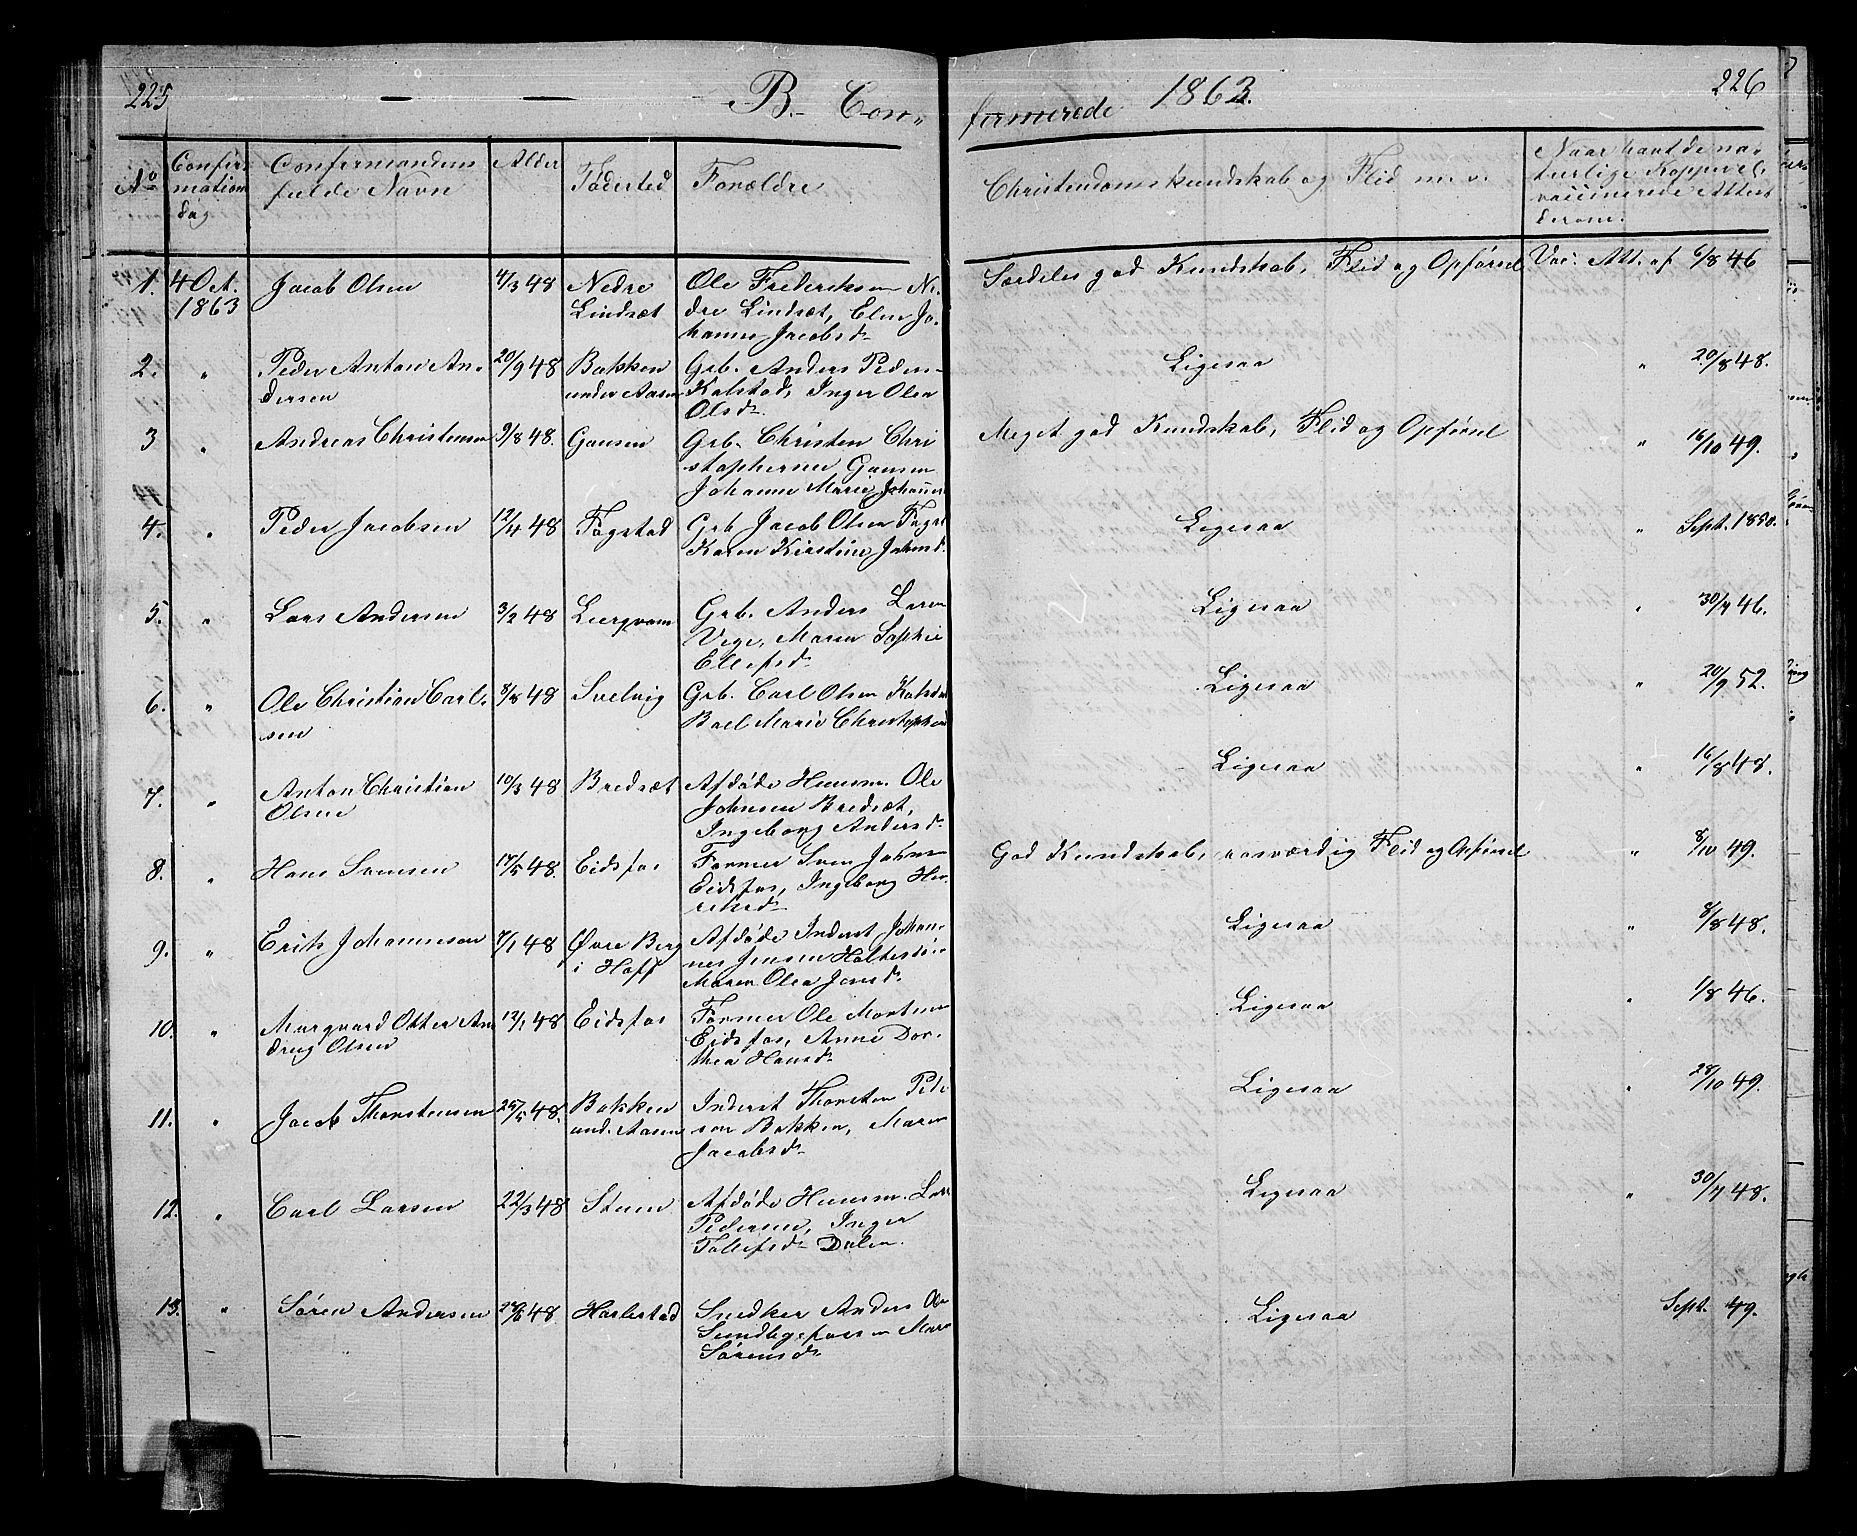 225 B. Con„ firmerede 1863. 226
No Confir mation dag Confirmandens fulde Navn Alder Fødested Forældre Christendomskundskab og Flid m. v. Naar havt de na turlige Kopper el. vaccinerede Attest derom.
1. 4 Oct. 1863 Jacob Olsen 4/3 48 Nedre Lindsæt Ole Frederiksen Ne dre Lindsæt, Elen Jo hanne Jacobsd. Særdeles god Kundskab, Flid og Opførsel Vac. Att. af 6/8 46
2. „ Peder Anton An dersen 20/9 48 Bakken under Aasen Grb. Anders Peders Kalstad, Inger Olea Olsd. Ligesaa „ 20/8 48.
3 „ Andreas Christensen 9/8 48. Gausen Grb. Christen Chri stophersen Gausen Johanne Marie Meget god Kundskab, Flid og Opførsel „ 16/10 49.
4. „ Peder Jacobsen 12/4 48 Fogstad Grb. Jacob Olsen Karen Kirstine Ligesaa „ Sept. 1850.
5. „ Lars Andersen 3/2 48 Leergvam Grb. Anders Larsen Vege, Maren Sophie Ellefsd. Ligesaa „ 30/7 46.
6. „ Ole Christian Carl sen 8/8 48 Svelvig Grb. Carl Olsen Boel Marie Ligesaa „ 20/9 52.
7. „ Anton Christian Olsen 10/3 48 Bredsæt Afdøde Huusm. Ole Johnsen Bredsæt, Ingeborg Andersd. Ligesaa „ 16/8 48.
8. „ Hans Svensen 17/5 48. Eidsfos Former Sven Johns Eidsfos, Ingeborg Hen riksd. God Kundskab, rosværdig Flid og Opførsel „ 8/10 49.
9. „ Erik Johannesen 7/1 48 Øvre Berg i Hoff Afdøde Inderst Johan nes Jensen Maren Olea Jensd. Ligesaa „ 8/8 48.
10. „ Marqvard Otter An dreas Olsen 12/1 48 Eidsfos Former Ole Mortens Eidsfos, Anne Dor thea Hansd. Ligesaa „ 1/8 46.
11. „ Jacob Thorstensen 25/5 48. Bakken und. Aasen Inderst Thorsten Pede sen Bakken, Maren Jacobsd. Ligesaa „ 28/10 49.
12. „ Carl Larsen 22/3 48 Steen Afdøde Huusm. Lars Pedersen, Inger Tollefsd. Dalen. Ligesaa „ 30/7 48.
13. „ Søren Andersen 48 Harlestad Snedker Anders Ole Sundbyefossen Mare Sørensd. Ligesaa Sept. 49.